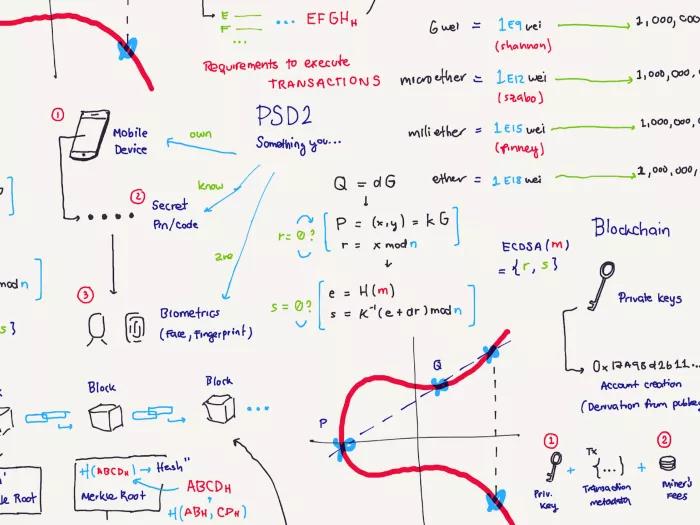 E
F
...
... EFGH_H
Requirements to execute
TRANSACTIONS
Gwei = 1E9 wei
(shannon)
microether = 1E12 wei
(szabo)
1,000,000,
miliether = 1E15 wei
(finney)
1,000,000,
ether = 1E18 wei
1,000,000,
1
Mobile
Device
own
PSD2
Something you...
know
are
2
Secret
Pin/code
3
Biometrics
(Face, Fingerprint)
Q = dG
r=0?
P = (x,y) = kG
r = x mod n
s=0?
e = H(m)
s = K⁻¹(e + dr) mod n
ECDSA(m)
= {r, s}
mod n
s}
Blockchain
Private keys
0x17A98d2611...
Account creation
(Derivation from public
Block
Block
...
H(ABCD_H) → Hash"
Merkle Root
le Root
ABCD_H
H(AB_H, CD_H)
P
Q
1
Priv.
Key
+
Tx
{...}
Transaction
metadata
+
2
Miner's
Fees